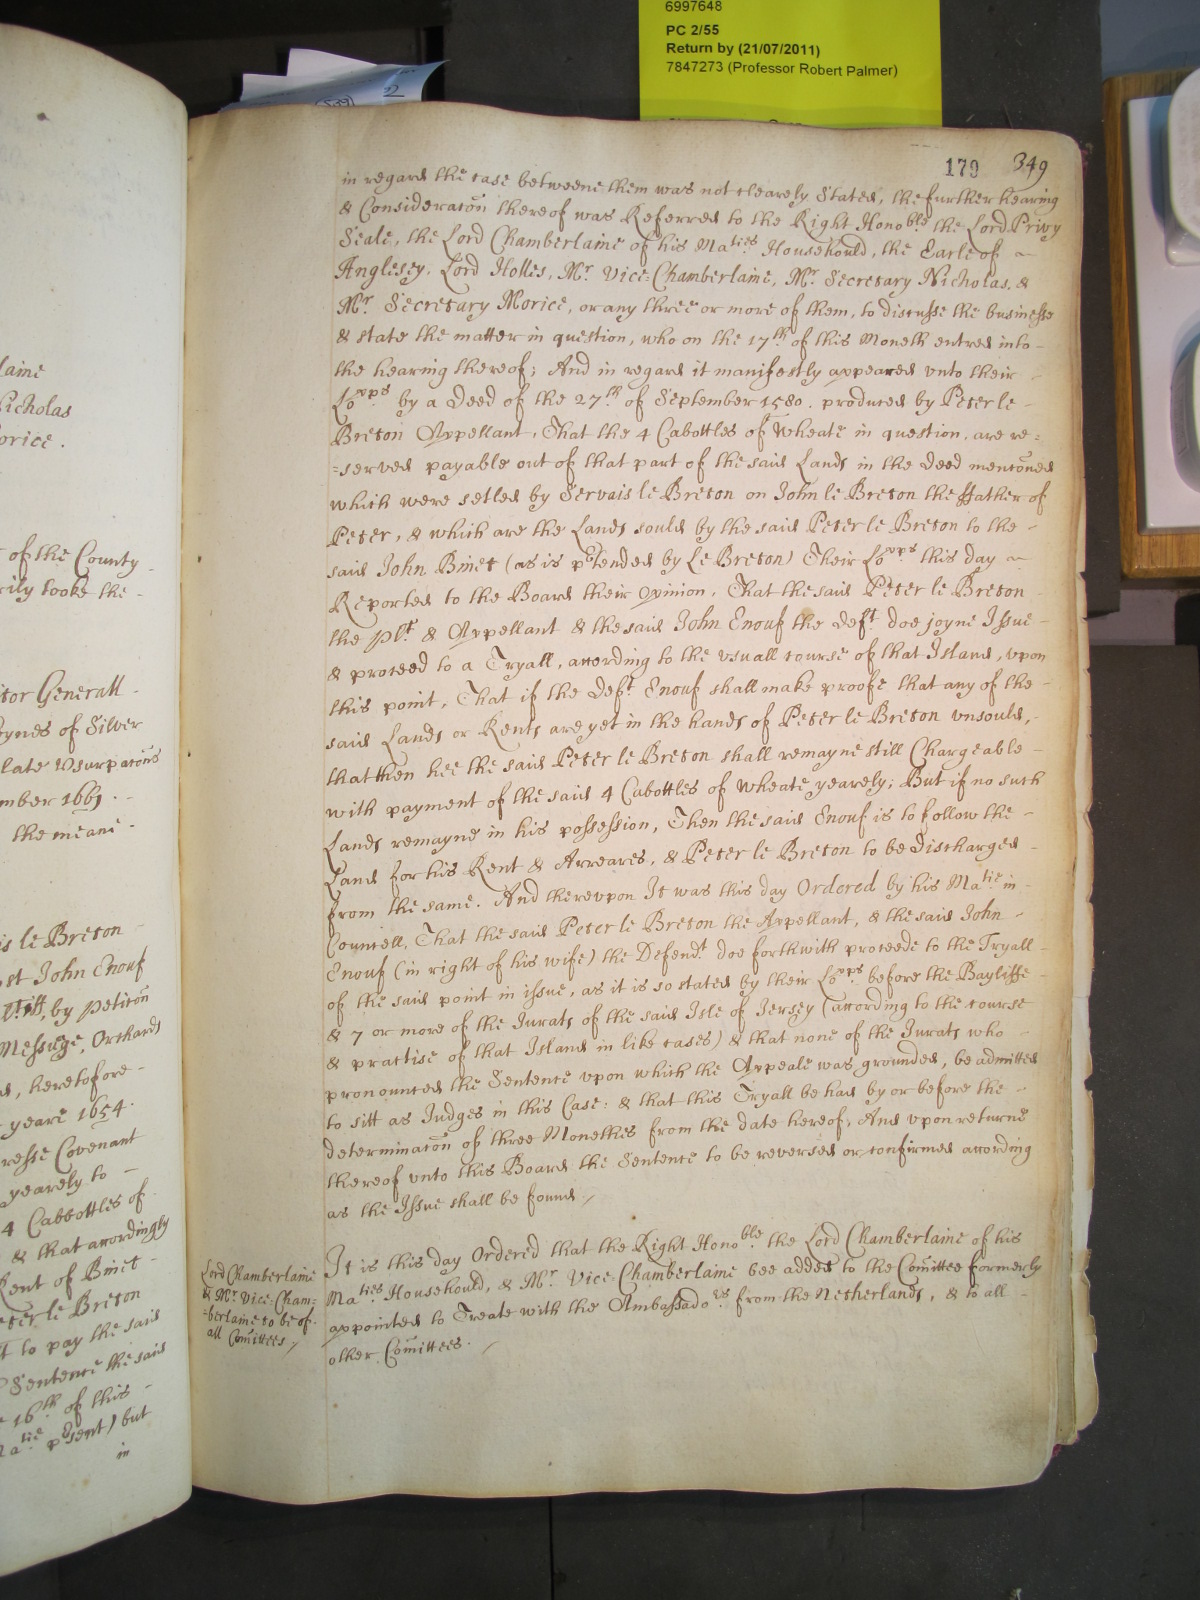 6997648
PC 2/55
Return by (21/07/2011)
7847273 (Professor Robert Palmer)
179 349
in regard the case betweene them was not clearely Stated, the further hearing
& Consideracõn thereof was Referred to the Right Hono:ble the Lord Privy
Seale, the Lord Chamberlaine of his Ma:ties Househould, the Earle of
Anglesey, Lord Holles, Mr. Vice=Chamberlaine, Mr. Secretary Nicholas, &
Mr. Secretary Morice, or any three or more of them, to discusse the businesse
& state the matter in question, who on the 17th of this Moneth entred into
the hearing thereof; And in regard it manifestly appeared vnto their
Lo:pps by a Deed of the 27th of September 1580. produced by Peter le
Breton Appellant, That the 4 Cabottles of Wheate in question, are re=
=served payable out of that part of the said Lands in the Deed mencõned
which were setled by Servais le Breton on John le Breton the ffather of
Peter, & which are the Lands sould by the said Peter le Breton to the
said John Binet (as is ptended by Le Breton) Their Lo:pps this day
Reported to the Board their Opinion, That the said Peter le Breton
the Plt. & Appellant & the said John Enouf the Deft. doe joyne Issue
& proceed to a Tryall, according to the vsuall course of that Island, vpon
this point, That if the Deft. Enouf shall make proofe that any of the
said Lands or Rents are yet in the hands of Peter le Breton vnsould,
that then hee the said Peter le Breton shall remayne still Chargeable
with payment of the said 4 Cabottles of Wheate yearely; But if no such
Lands remayne in his possession, Then the said Enouf is to follow the
Land for his Rent & Arreares, & Peter le Breton to be Discharged
from the same. And therevpon It was this day Ordered by his Ma:tie in
Councell, That the said Peter le Breton the Appellant, & the said John
Enouf (in right of his wife) the Defend:t doe forthwith proceede to the Tryall
of the said point in issue, as it is so stated by their Lo:pps before the Bayliffe
& 7 or more of the Jurats of the said Isle of Jersey (according to the course
& practise of that Island in like cases) & that none of the Jurats who
pronounced the Sentence vpon which the Appeale was grounded, be admitted
to sitt as Judges in this Case: & that this Tryall be had by or before the
determinacõn of three Monethes from the date hereof; And vpon returne
thereof vnto this Board the Sentence to be reversed or confirmed according
as the Issue shall be found
Lord Chamberlaine
& Mr. Vice=Cham=
=berlaine to be of
all Comittees
It is this day Ordered that the Right Hono:ble the Lord Chamberlaine of his
Ma:ties Househould, & Mr. Vice=Chamberlaine bee added to the Comittee formerly
appointed to Treate with the Ambassado:rs from the Netherlands, & to all
other Comittees.
laine
Nicholas
orice.
of the County
rily tooke the
itor Generall
of Silver
late Vsurpacõns
mber 1661.
the meane
is le Breton
st John Enouf
by peticõn
Messuage, Orchards
heretofore
yeare 1654.
resse Covenant
yearely to
4 Cabbottles of
& that accordingly
Rent of Binet
eter le Breton
to pay the said
Sentence the said
16th of this
Ma:tie psent) but
in